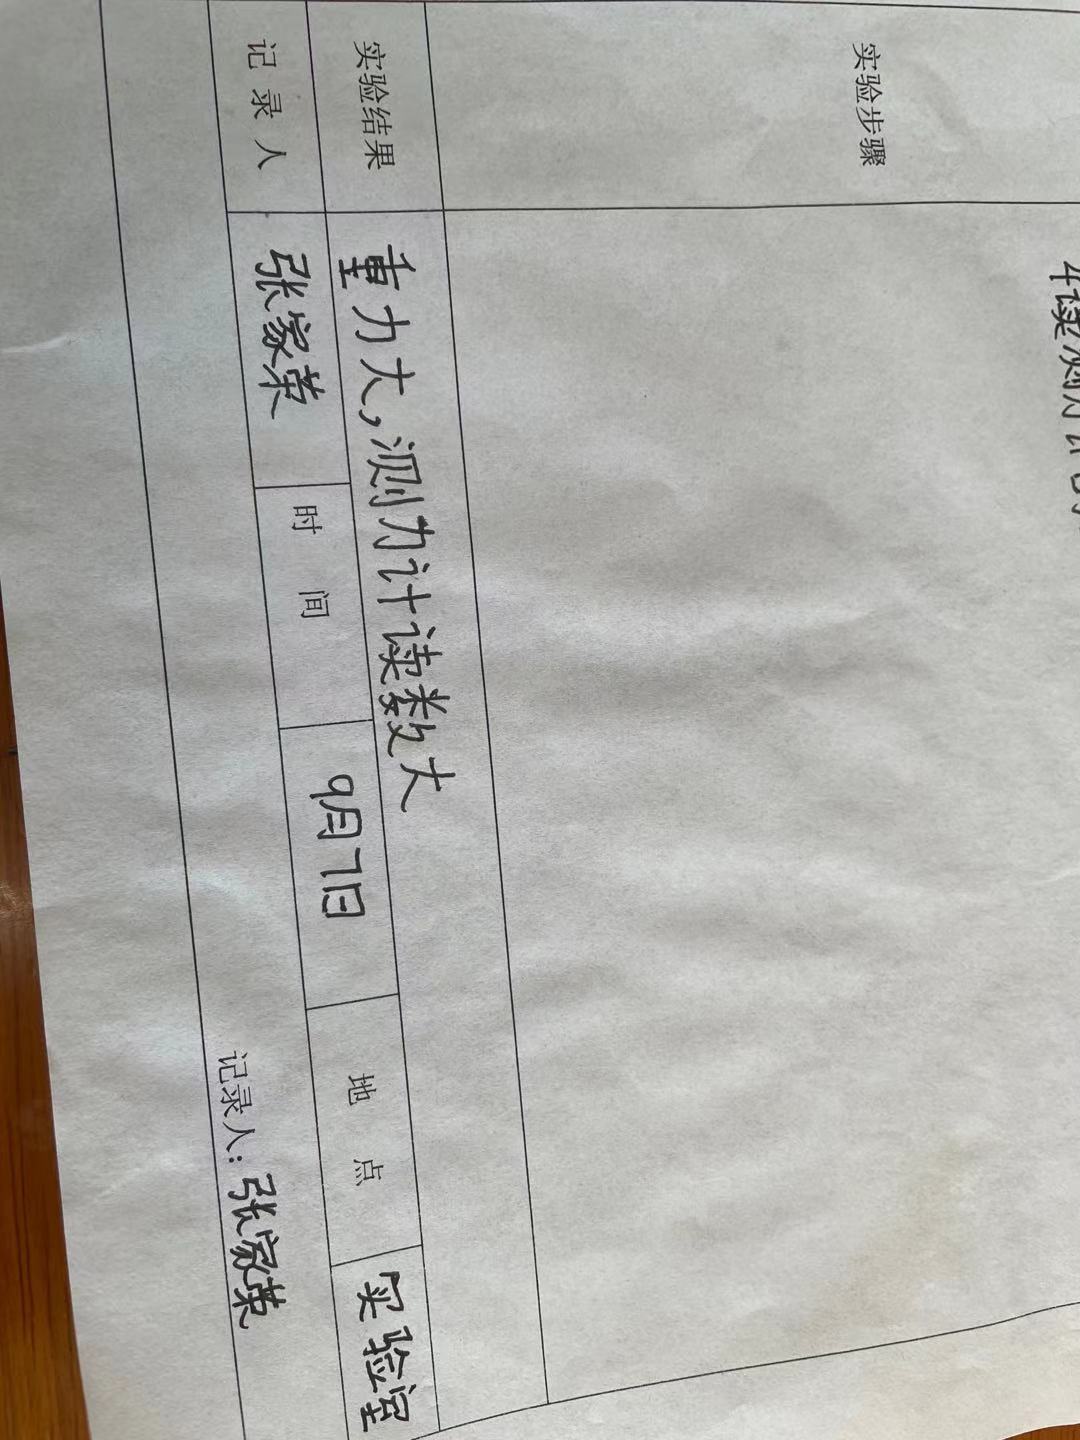 4读测力计的
实验步骤
实验结果 重力大,测力计读数大
记录人 张家荣 时间 9月7日 地点 实验室
记录人:张家荣